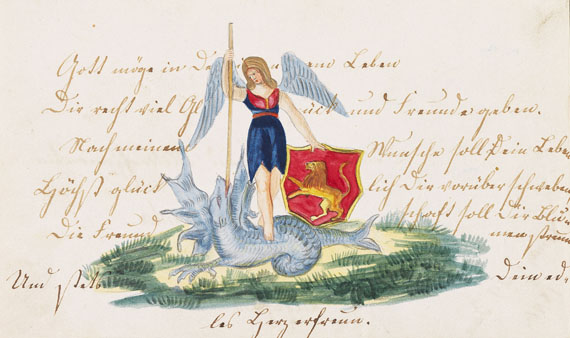 Gott möge in Deinem Leben
Dir recht viel Glück und Freunde geben.
Nach meinem Wunsche soll Dein Leben
Höchst glücklich Dir vorüber schweben,
Die Freundschaft soll Dir Blumen streun
Und stets Dein ed-
les Herz erfreun.